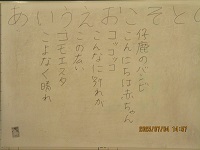 あいうえおこそとの
体験のハミング
こんにちは赤ちゃん
ゴーゴーゴー
こんなに別れが
この広い
コモエスタ
こよなく晴れ
2025/07/04 14:07